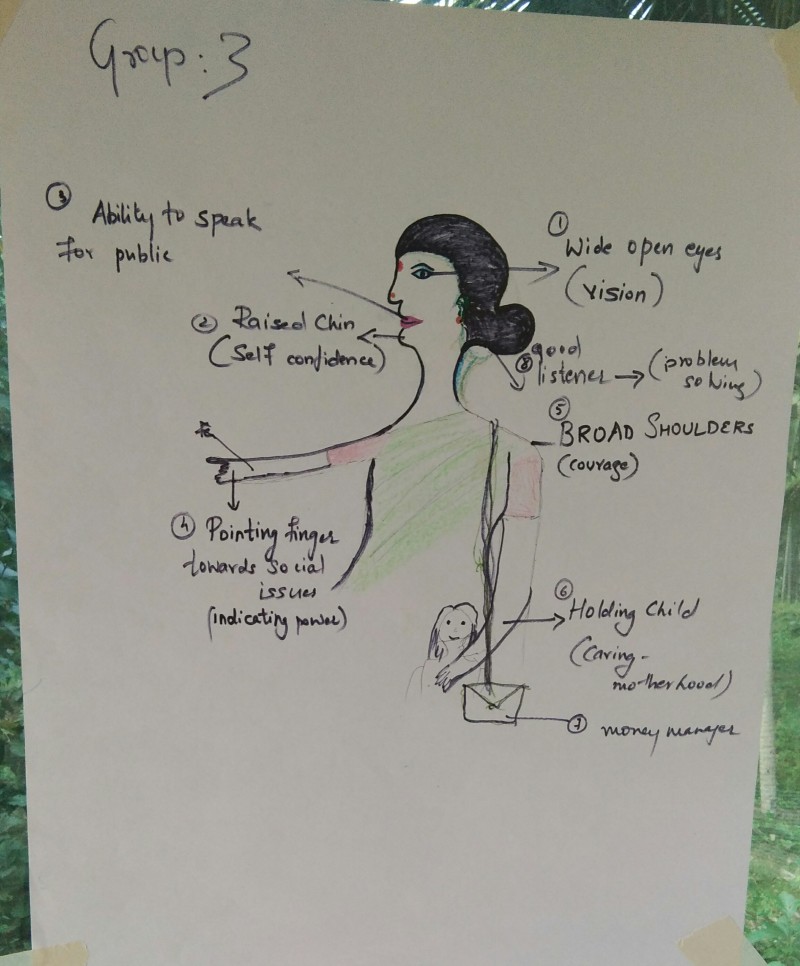 Group: 3
③ Ability to speak
for public
① Wide open eyes
(vision)
② Raised Chin
(Self confidence)
⑧ good
listener → (problem
solving)
⑤
BROAD SHOULDERS
(courage)
④ Pointing finger
towards social
issues
(indicating power)
⑥ Holding child
(Caring-
motherhood)
⑦ money manager